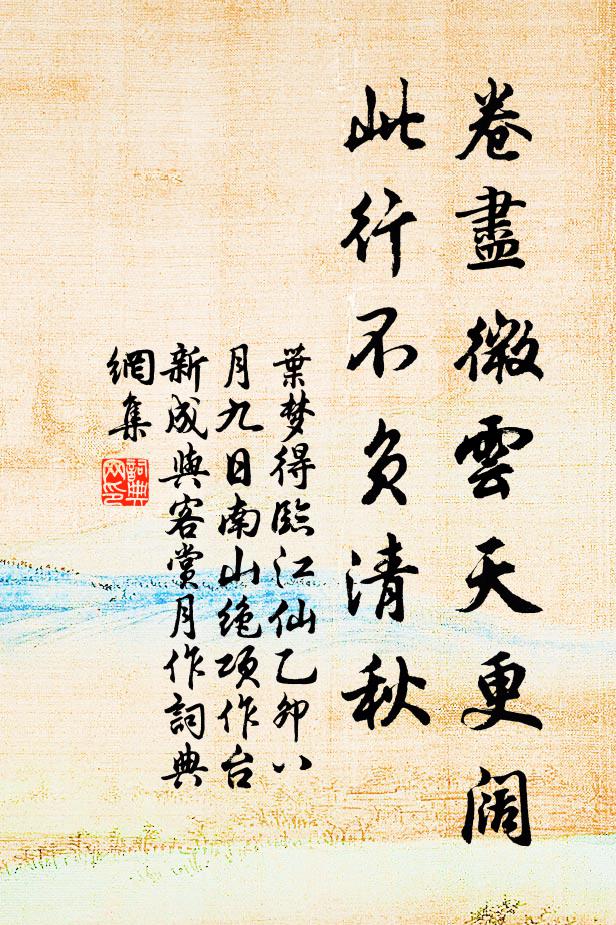 卷盡微雲天更闊
此行不負清秋
葉梦得臨江仙乙卯八
月九日南山绝项作台
新成與客賞月作詞典
網集
詞典
网印